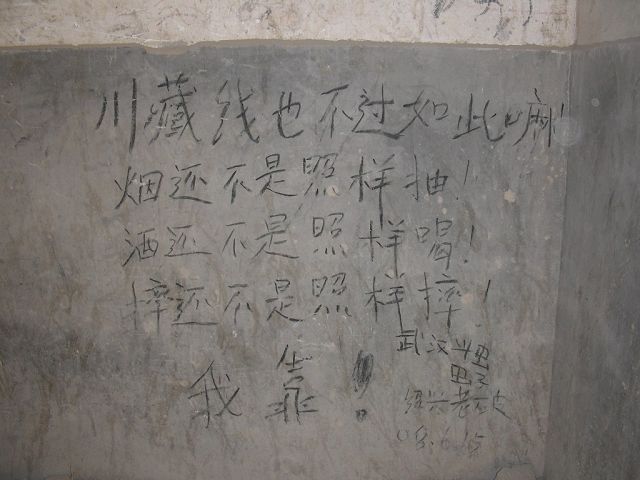 川藏线也不过如此嘛!
烟还不是照样抽!
酒还不是照样喝!
摔还不是照样摔!
我靠!
武汉
绍兴老
08.6.15